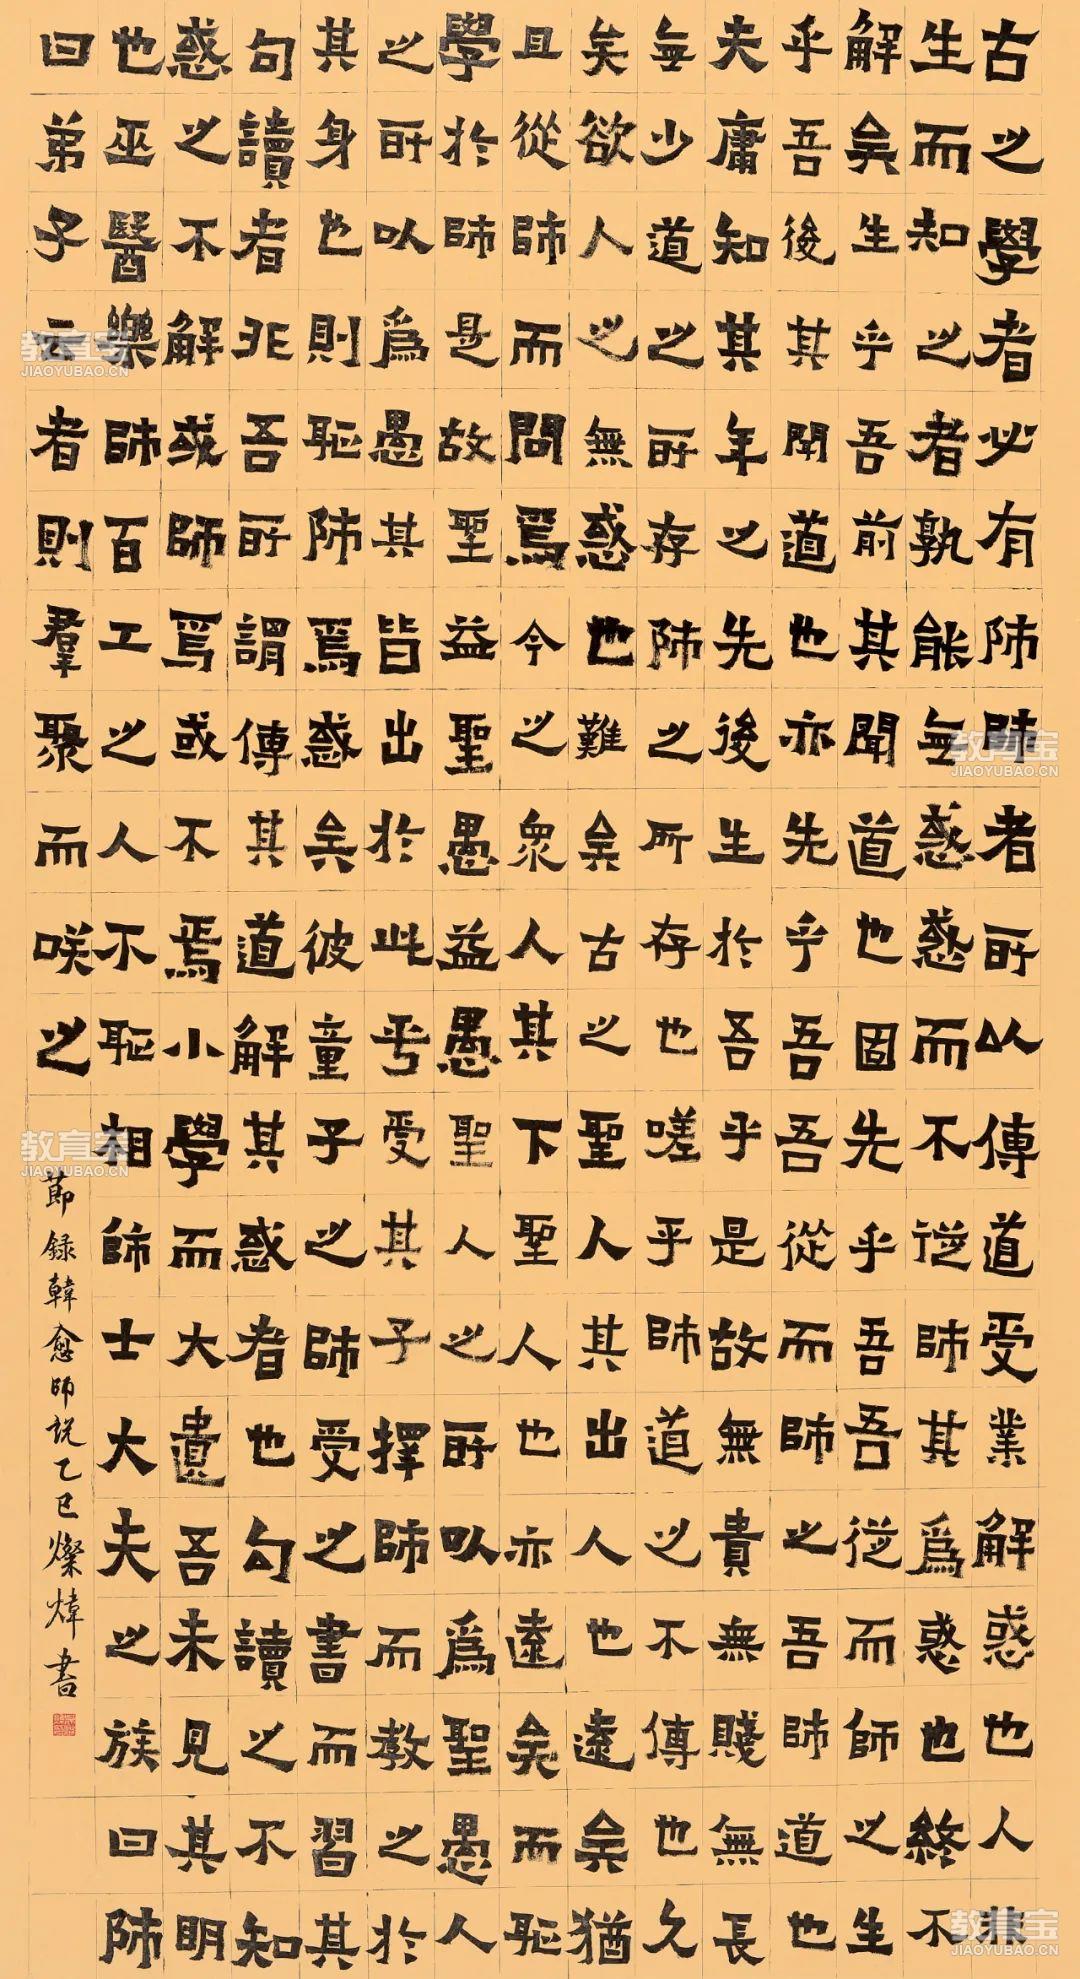 古之學者必有師師者所以傳道受業解惑也人非
生而知之者孰能無惑惑而不從師其爲惑也終不
解矣生乎吾前其聞道也固先乎吾吾從而師之生
乎吾後其聞道也亦先乎吾吾從而師之吾師道也
夫庸知其年之先後生於吾乎是故無貴無賤無長
無少道之所存師之所存也嗟乎師道之不傳也久
矣欲人之無惑也難矣古之聖人其出人也遠矣猶
且從師而問焉今之衆人其下聖人也亦遠矣而恥
學於師是故聖益聖愚益愚聖人之所以爲聖愚人
之所以爲愚其皆出於此乎受其子擇師而教之於
其身也則恥師焉惑矣彼童子之師受之書而習其
句讀者非吾所謂傳其道解其惑者也句讀之不知
惑之不解或師焉或不焉小學而大遺吾未見其明
也巫醫樂師百工之人不恥相師士大夫之族曰師
曰弟子云者則羣聚而咲之
節録韓愈師說乙巳燦煒書
教育宝
JIAOYUBAO.CN
教育宝
JIAOYUBAO.CN
教育宝
JIAOYUBAO.CN
教育宝
JIAOYUBAO.CN